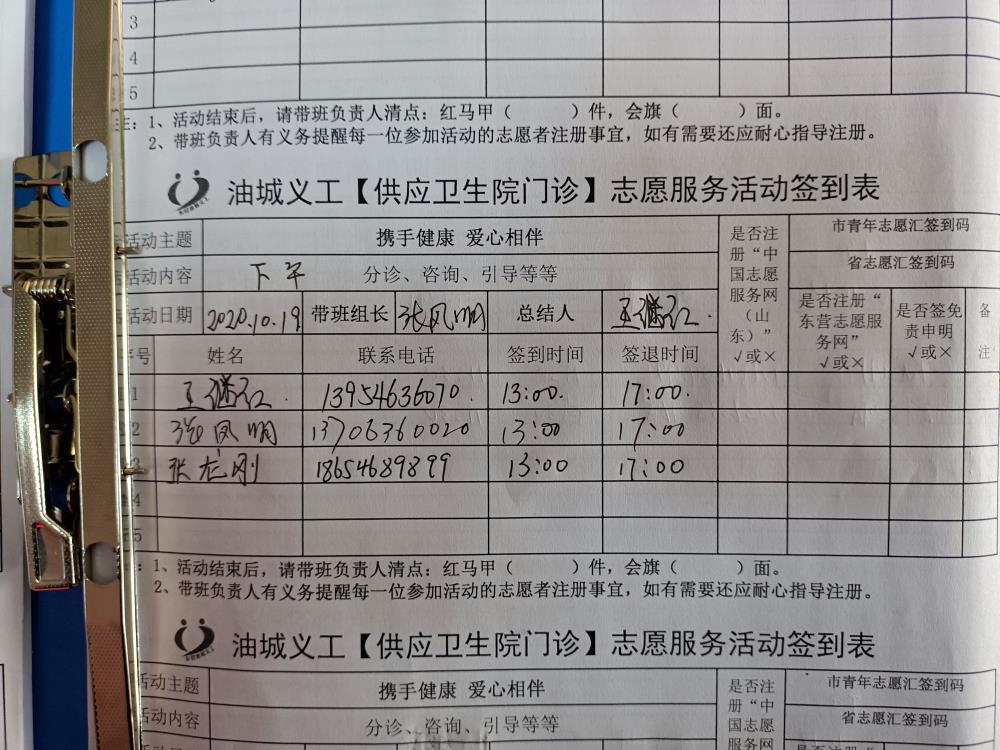 3
4
5
注：1、活动结束后，请带班负责人清点：红马甲（　　　）件，会旗（　　　）面。
2、带班负责人有义务提醒每一位参加活动的志愿者注册事宜，如有需要还应耐心指导注册。
油城义工【供应卫生院门诊】志愿服务活动签到表
活动主题 携手健康 爱心相伴 是否注册“中国志愿服务网（山东）”√或× 市青年志愿汇签到码
活动内容 下午 分诊、咨询、引导等等 省志愿汇签到码
活动日期 2020.10.19 带班组长 张凤明 总结人 王继红. 是否注册“东营志愿服务网”√或× 是否签免责申明√或× 备注
号 姓名 联系电话 签到时间 签退时间
1 王继红. 13954636070. 13:00. 17:00.
2 张凤明 13706360020 13:00 17:00
3 张龙刚 18654689899 13:00 17:00
4
5
：1、活动结束后，请带班负责人清点：红马甲（　　　）件，会旗（　　　）面。
2、带班负责人有义务提醒每一位参加活动的志愿者注册事宜，如有需要还应耐心指导注册。
油城义工【供应卫生院门诊】志愿服务活动签到表
活动主题 携手健康 爱心相伴 是否注册“中国志愿服务网 市青年志愿汇签到码
活动内容 分诊、咨询、引导等等 省志愿汇签到码